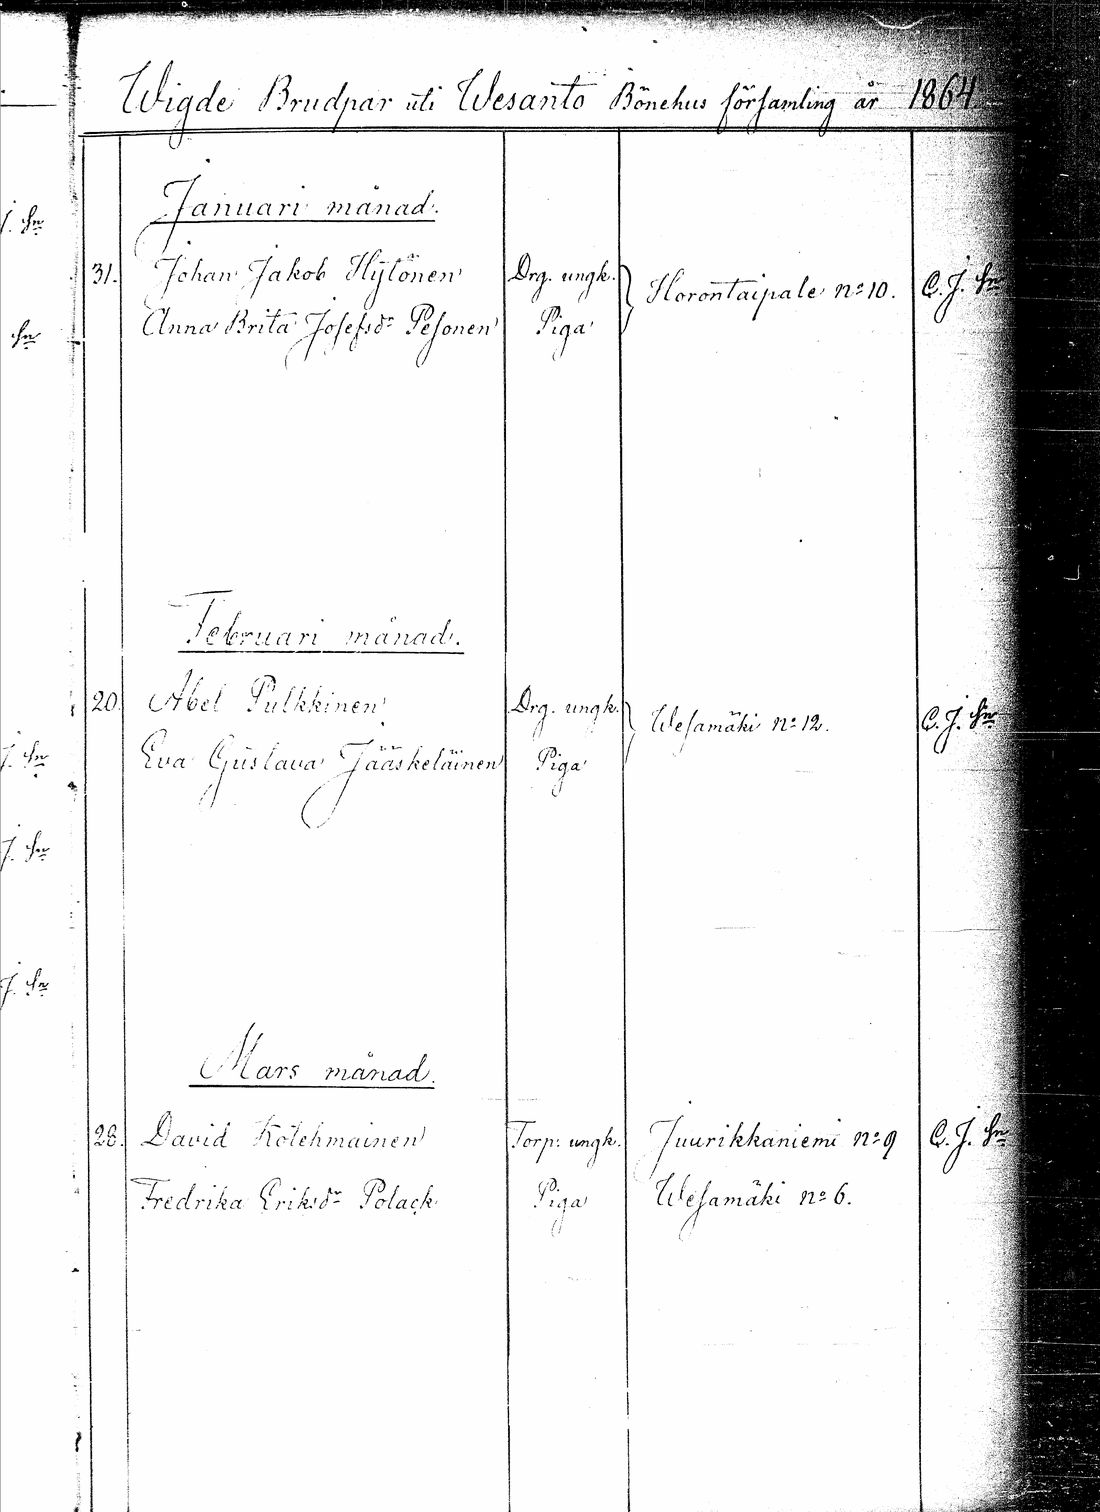 Wigde Brudpar uti Wesanto Bönehus församling år 1864
Januari månad.
31. Johan Jakob Hytönen Drg. ungk. Horontaipale no 10. C. J. hn
Anna Brita Josefsdr Pesonen Piga
Februari månad.
20. Abel Pulkkinen Drg. ungk. Wesamäki no 12. C. J. hn
Eva Gustava Jääskeläinen Piga
Mars månad.
28. David Kolehmainen Torp: ungk. Juurikkaniemi no 9 C. J. hn
Fredrika Eriksdr Polack Piga Wesamäki no 6.